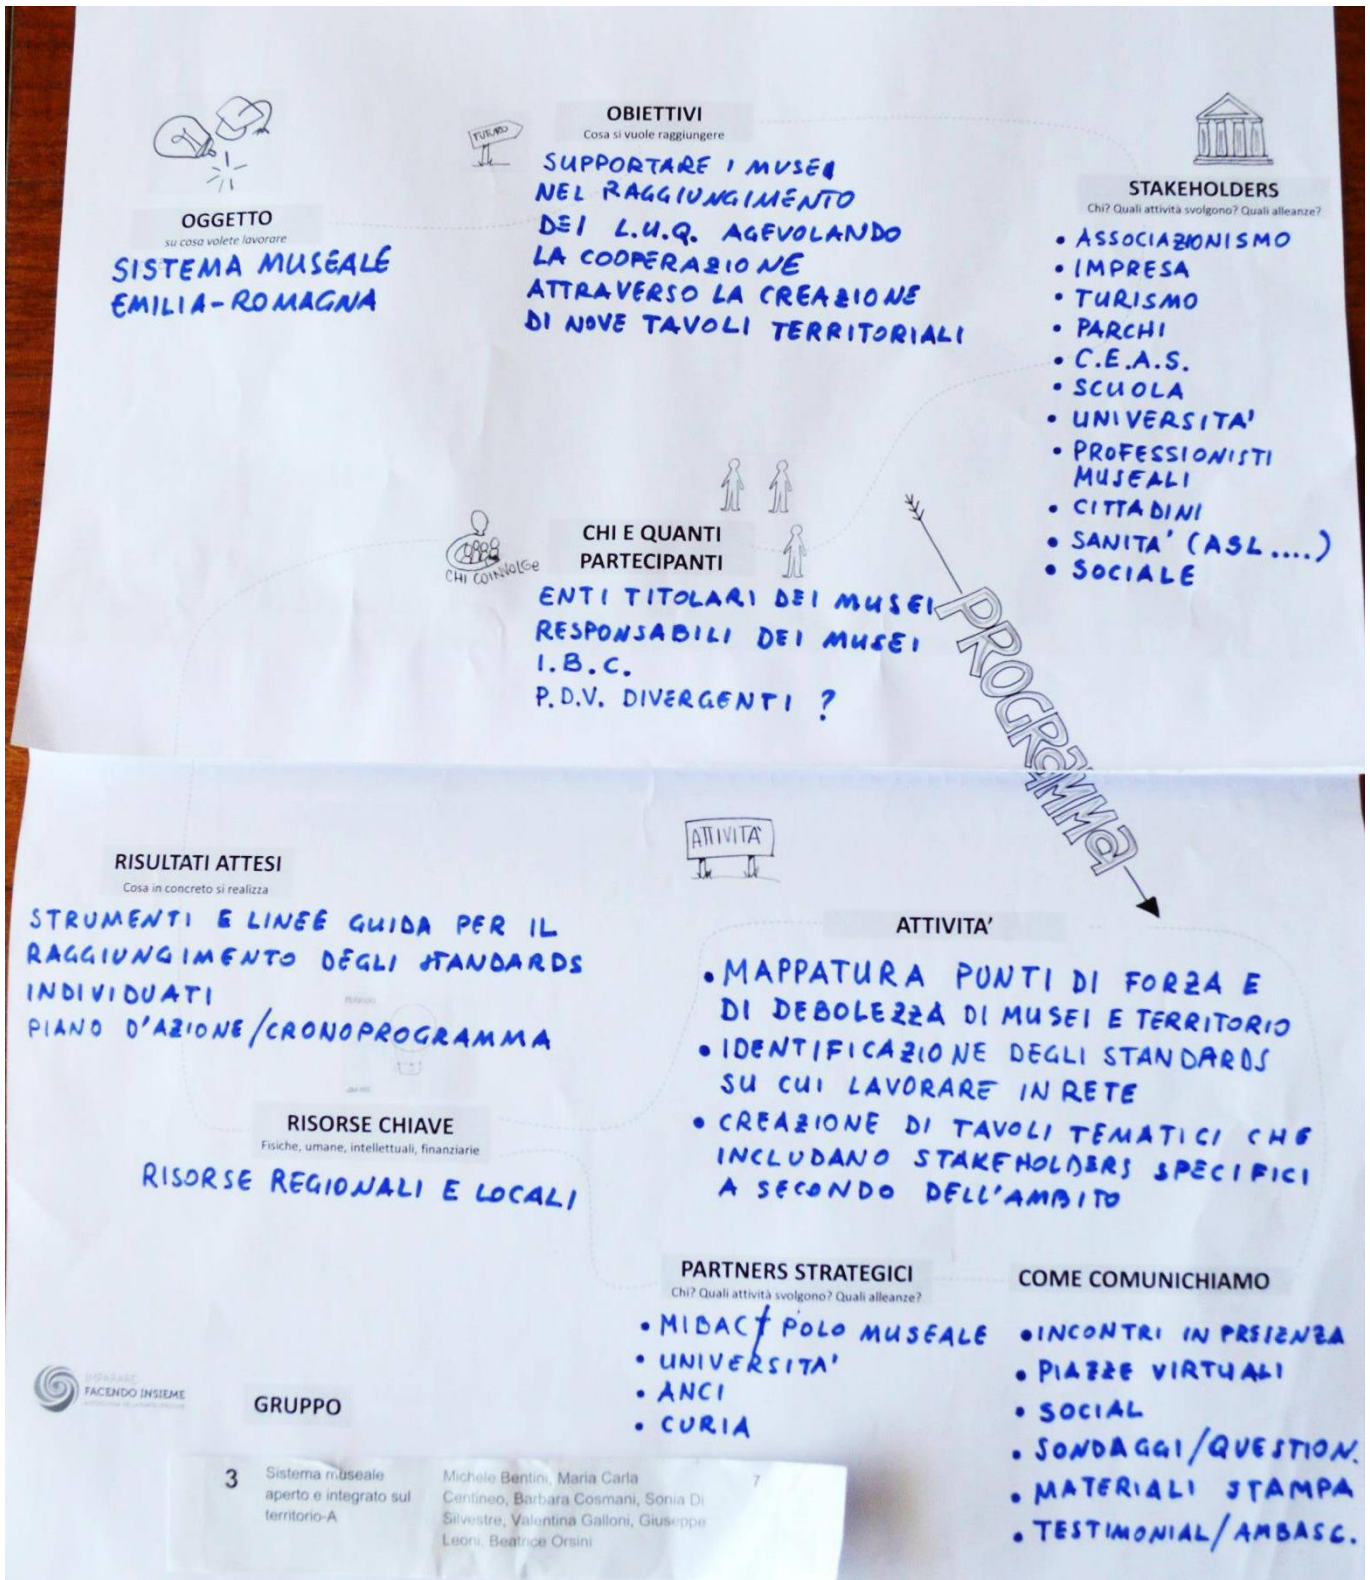 OGGETTO
su cosa volete lavorare
SISTEMA MUSEALE
EMILIA-ROMAGNA
FUTURO
OBIETTIVI
Cosa si vuole raggiungere
SUPPORTARE I MUSEI
NEL RAGGIUNGIMENTO
DEI L.U.Q. AGEVOLANDO
LA COOPERAZIONE
ATTRAVERSO LA CREAZIONE
DI NOVE TAVOLI TERRITORIALI
STAKEHOLDERS
Chi? Quali attività svolgono? Quali alleanze?
• ASSOCIAZIONISMO
• IMPRESA
• TURISMO
• PARCHI
• C.E.A.S.
• SCUOLA
• UNIVERSITA'
• PROFESSIONISTI
MUSEALI
• CITTADINI
• SANITA' (ASL ....)
• SOCIALE
CHI COINVOLGE
CHI E QUANTI
PARTECIPANTI
ENTI TITOLARI DEI MUSEI
RESPONSABILI DEI MUSEI
I.B.C.
P.D.V. DIVERGENTI ?
PROGRAMMA
RISULTATI ATTESI
Cosa in concreto si realizza
STRUMENTI E LINEE GUIDA PER IL
RAGGIUNGIMENTO DEGLI STANDARDS
INDIVIDUATI
PIANO D'AZIONE/CRONOPROGRAMMA
RISORSE CHIAVE
Fisiche, umane, intellettuali, finanziarie
RISORSE REGIONALI E LOCALI
ATTIVITÀ
ATTIVITA'
• MAPPATURA PUNTI DI FORZA E
DI DEBOLEZZA DI MUSEI E TERRITORIO
• IDENTIFICAZIONE DEGLI STANDARDS
SU CUI LAVORARE IN RETE
• CREAZIONE DI TAVOLI TEMATICI CHE
INCLUDANO STAKEHOLDERS SPECIFICI
A SECONDO DELL'AMBITO
PARTNERS STRATEGICI
Chi? Quali attività svolgono? Quali alleanze?
• MIBACT/POLO MUSEALE
• UNIVERSITA'
• ANCI
• CURIA
COME COMUNICHIAMO
• INCONTRI IN PRESENZA
• PIAZZE VIRTUALI
• SOCIAL
• SONDAGGI/QUESTION.
• MATERIALI STAMPA
• TESTIMONIAL/AMBASC.
IMPARARE
FACENDO INSIEME
GRUPPO
3 Sistema museale aperto e integrato sul territorio-A
Michele Bentini, Maria Carla
Centineo, Barbara Cosmani, Sonia Di
Silvestre, Valentina Galloni, Giuseppe
Leoni, Beatrice Orsini
7